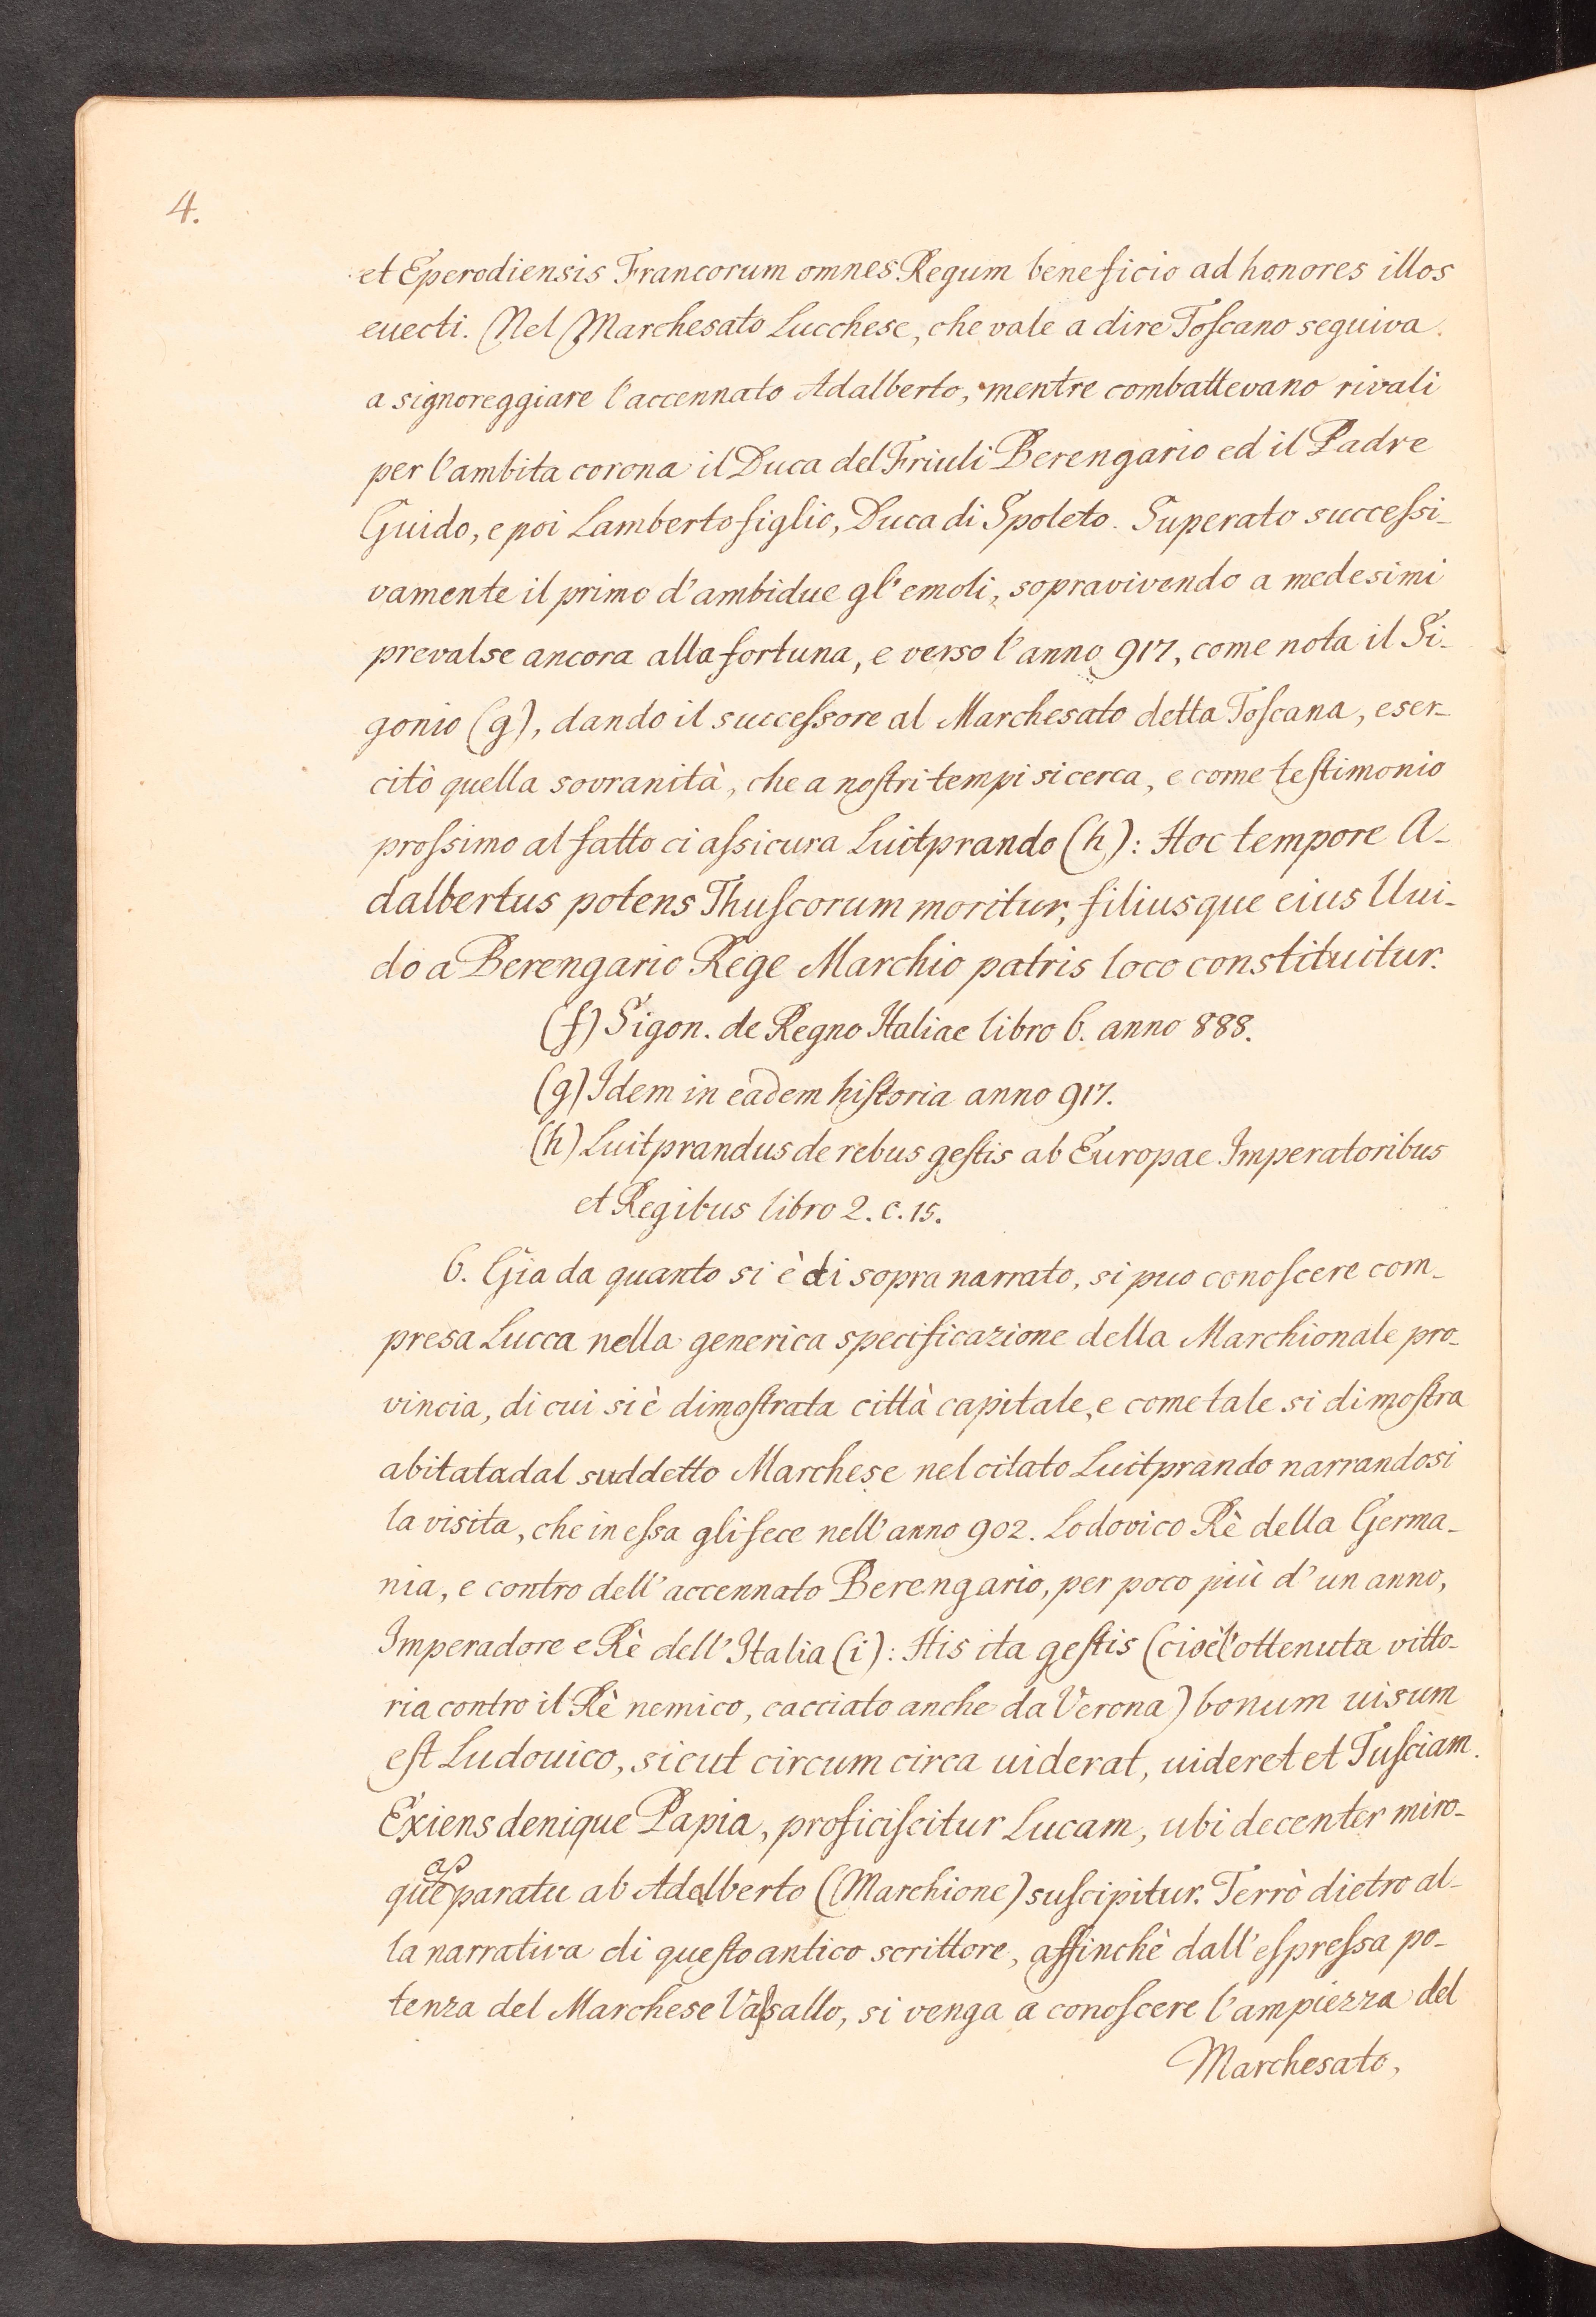 4.
et Eperodiensis Francorum omnes Regum beneficio ad honores illos
euecti. Nel Marchesato Lucchese, che vale a dire Toscano seguiva
a signoreggiare l'accennato Adalberto, mentre combattevano rivali
per l'ambita corona il Duca del Friuli Berengario ed il Padre
Guido, e poi Lamberto figlio, Duca di Spoleto. Superato successi-
vamente il primo d'ambidue gl'emoli, sopravivendo a medesimi
prevalse ancora alla fortuna, e verso l'anno 917, come nota il Si-
gonio (g), dando il successore al Marchesato detta Toscana, eser-
citò quella sovranità, che a nostri tempi si cerca, e come testimonio
prossimo al fatto ci assicura Luitprando (h): Hoc tempore A-
dalbertus potens Thuscorum moritur, filiusque eius Uui-
do a Berengario Rege Marchio patris loco constituitur.
(f) Sigon. de Regno Italiae libro 6. anno 888.
(g) Idem in eadem historia anno 917.
(h) Luitprandus de rebus gestis ab Europae Imperatoribus
et Regibus libro 2. c. 15.
6. Gia da quanto si è di sopra narrato, si puo conoscere com-
presa Lucca nella generica specificazione della Marchionale pro-
vincia, di cui si è dimostrata città capitale, e come tale si dimostra
abitata dal suddetto Marchese nel citato Luitprando narrandosi
la visita, che in essa gli fece nell'anno 902. Lodovico Rè della Germa-
nia, e contro dell'accennato Berengario, per poco più d'un anno,
Imperadore e Rè dell'Italia (i): His ita gestis (cioè l'ottenuta vitto-
ria contro il Rè nemico, cacciato anche da Verona) bonum uisum
est Ludouico, sicut circum circa uiderat, uideret et Tusciam.
Exiens denique Papia, proficiscitur Lucam, ubi decenter miro-
que apparatu ab Adalberto (Marchione) suscipitur. Terrò dietro al-
la narrativa di questo antico scrittore, affinchè dall'espressa po-
tenza del Marchese Vassallo, si venga a conoscere l'ampiezza del
Marchesato,